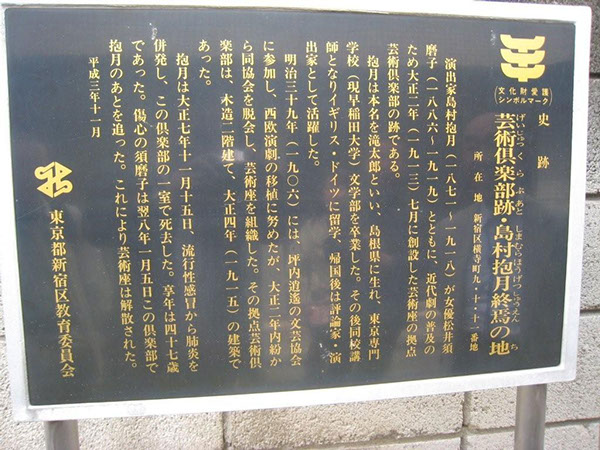 文化財愛護
シンボルマーク
史跡
げいじゅつくらぶあと しまむらほうげつしゅうえん ち
芸術倶楽部跡・島村抱月終焉の地
所在地 新宿区横寺町九・十・十一番地
演出家島村抱月(一八七一~一九一八)が女優松井須
磨子(一八八六~一九一九)とともに、近代劇の普及の
ため大正二年(一九一三)七月に創設した芸術座の拠点
芸術倶楽部の跡である。
抱月は本名を滝太郎といい、島根県に生れ、東京専門
学校(現早稲田大学)文学部を卒業した。その後同校講
師となりイギリス・ドイツに留学、帰国後は評論家・演
出家として活躍した。
明治三十九年(一九〇六)には、坪内逍遥の文芸協会
に参加し、西欧演劇の移植に努めたが、大正二年内紛か
ら同協会を脱会し、芸術座を組織した。その拠点芸術倶
楽部は、木造二階建で、大正四年(一九一五)の建築で
あった。
抱月は大正七年十一月十五日、流行性感冒から肺炎を
併発し、この倶楽部の一室で死去した。享年は四十七歳
であった。傷心の須磨子は翌八年一月五日この倶楽部で
抱月のあとを追った。これにより芸術座は解散された。
平成三年十一月
東京都新宿区教育委員会